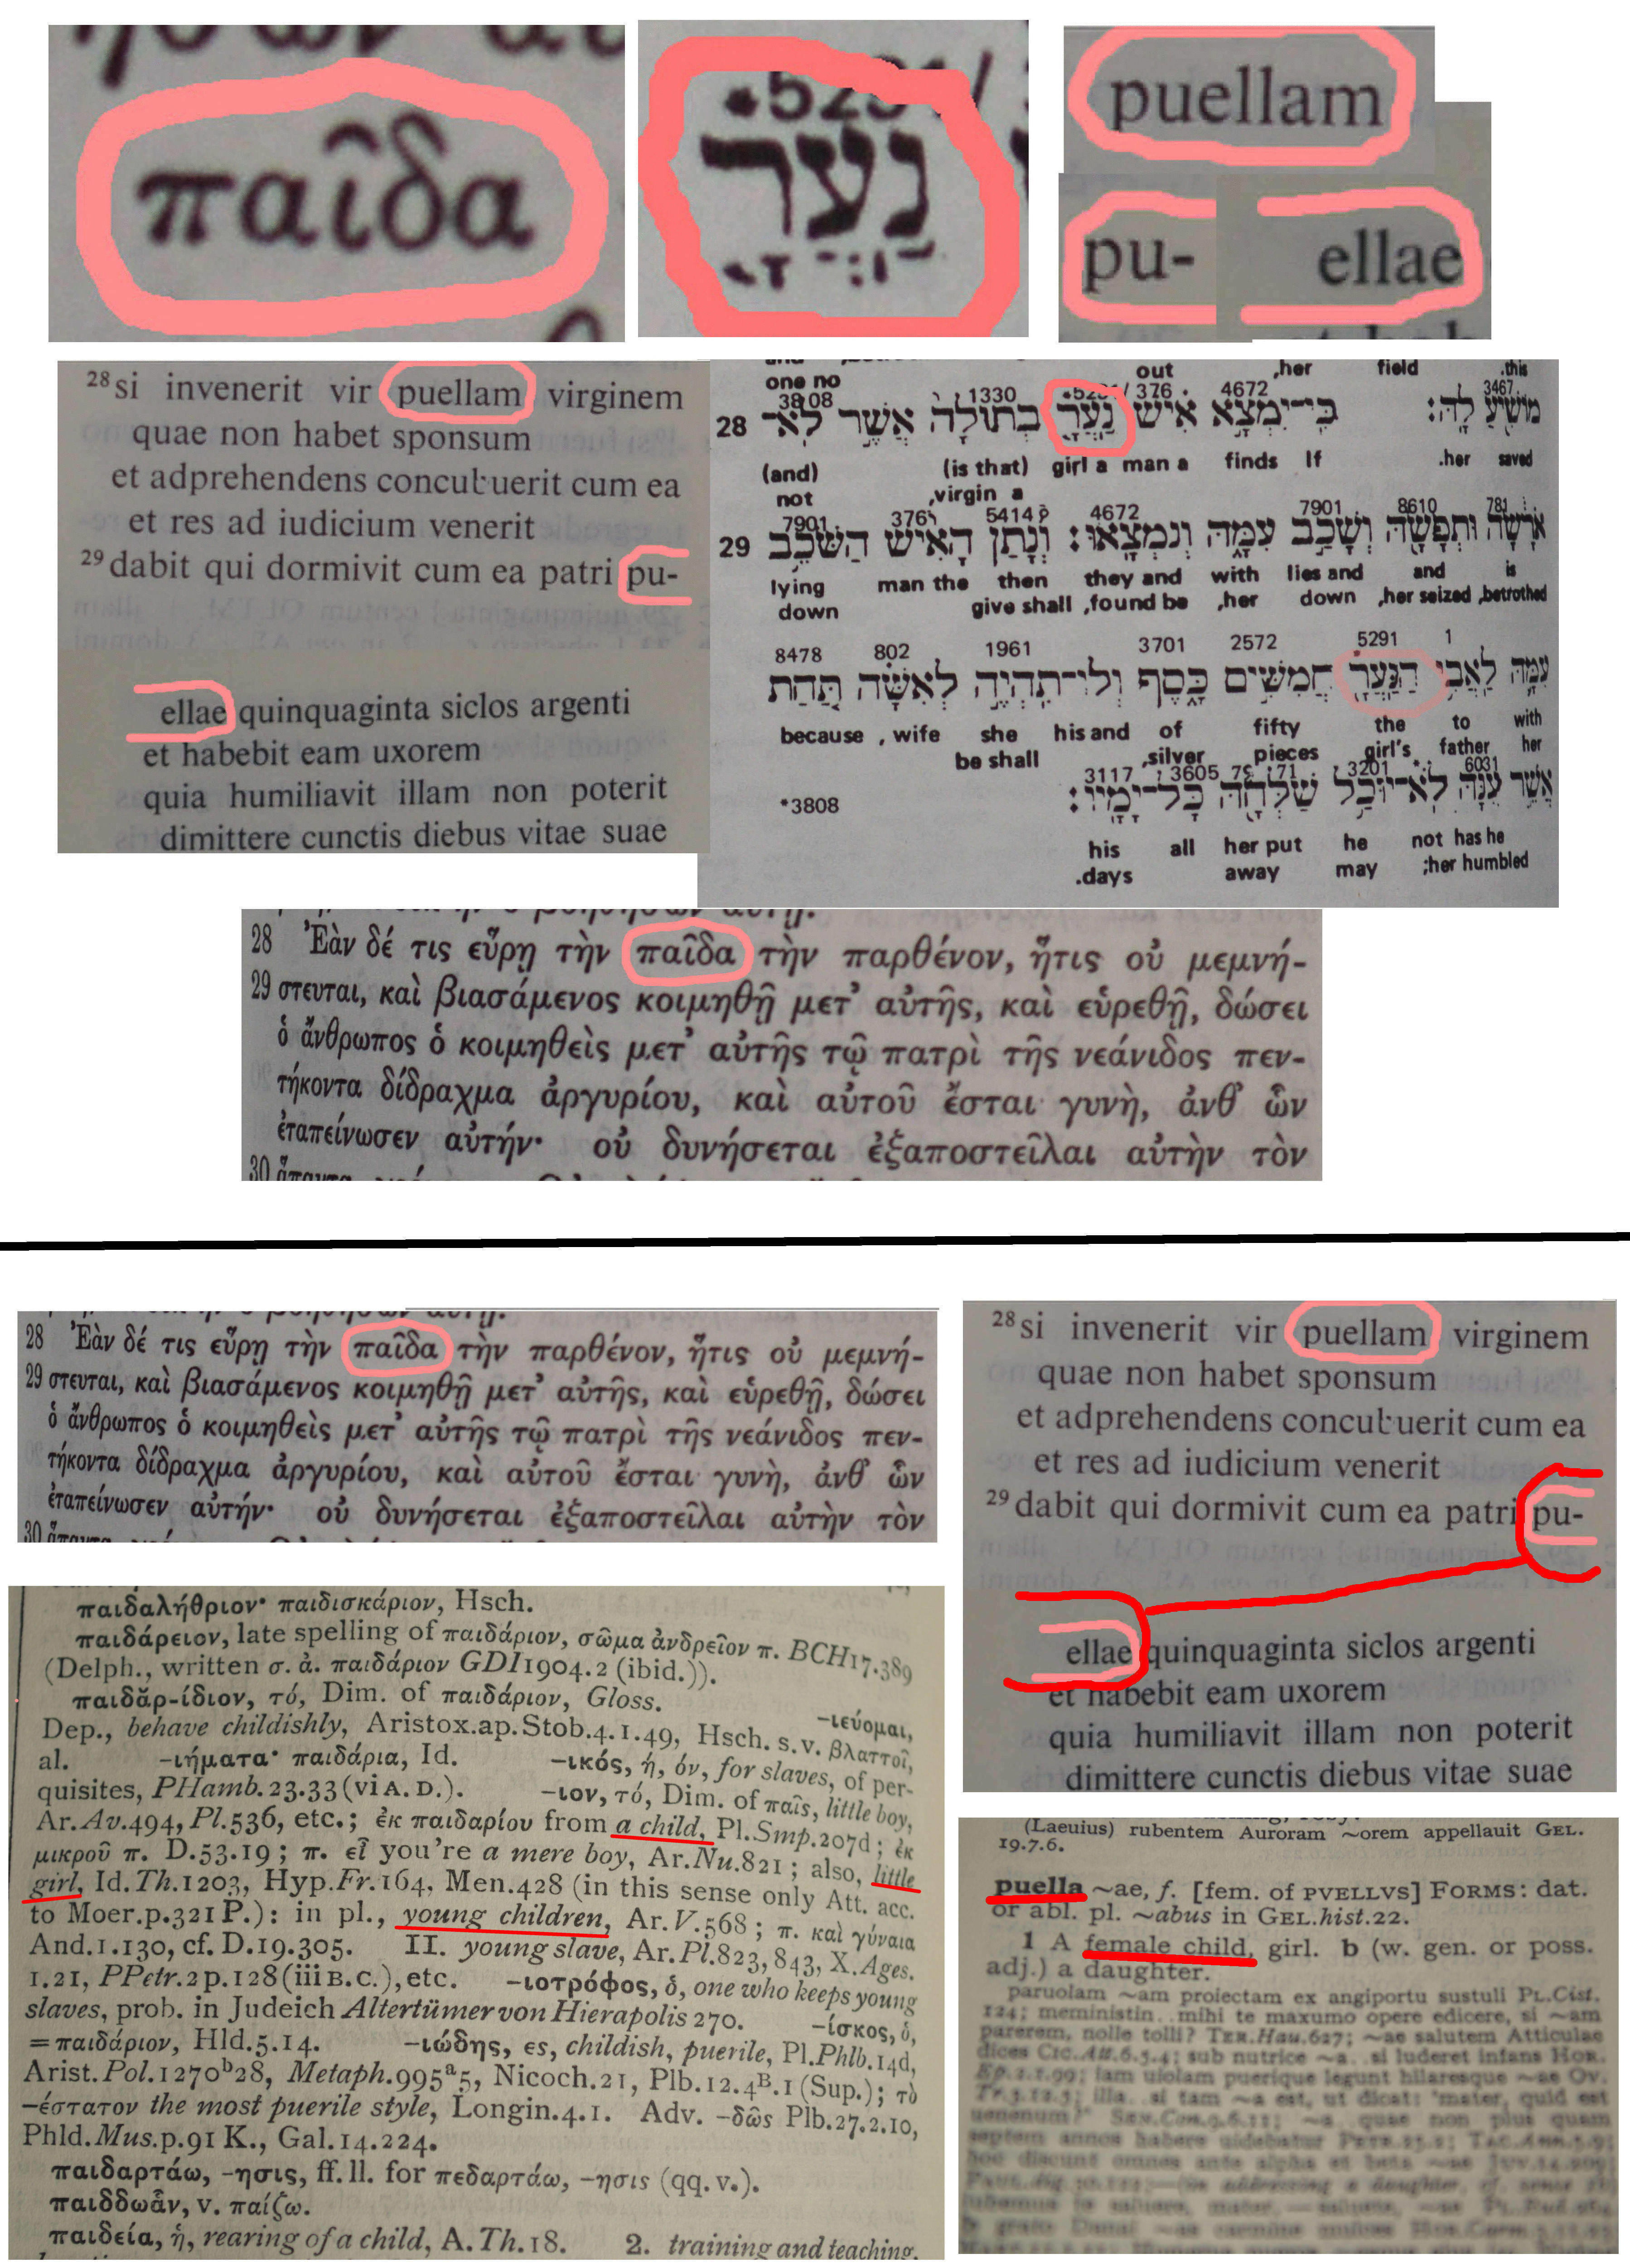 παῖδα
*5291/
נַעֲרָ
puellam
pu-
ellae
28 si invenerit vir puellam virginem
quae non habet sponsum
et adprehendens concubuerit cum ea
et res ad iudicium venerit
29 dabit qui dormivit cum ea patri pu-
ellae quinquaginta siclos argenti
et habebit eam uxorem
quia humiliavit illam non poterit
dimittere cunctis diebus vitae suae
out ,her field .this
one no
3808 1330 376 4672 3467
28 מוֹשִׁיעַ לָהּ׃ כִּי־יִמְצָא אִישׁ נַעֲרָ בְתוּלָה אֲשֶׁר לֹא־
(and) (is that) girl a man a finds If .her saved
not ,virgin a
7901 376 5414 4672 7901 8610 781
29 אֹרָשָׂה וּתְפָשָׂהּ וְשָׁכַב עִמָּהּ וְנִמְצָאוּ׃ וְנָתַן הָאִישׁ הַשֹּׁכֵב
lying man the then they and with lies and and is
down give shall ,found be ,her down ,her seized ,betrothed
8478 802 1961 3701 2572 5291 1
עִמָּהּ לַאֲבִי הַנַּעֲרָ חֲמִשִּׁים כָּסֶף וְלוֹ־תִהְיֶה לְאִשָּׁה תַּחַת
because , wife she his and of fifty the to with
be shall ,silver pieces girl's father her
3117 3605 71 3201 6031
*3808 אֲשֶׁר עִנָּהּ לֹא־יוּכַל שַׁלְּחָהּ כָּל־יָמָיו׃
his all her put he not has he
.days away may ;her humbled
28 Ἐὰν δέ τις εὕρῃ τὴν παῖδα τὴν παρθένον, ἥτις οὐ μεμνή-
29 στευται, καὶ βιασάμενος κοιμηθῇ μετ' αὐτῆς, καὶ εὑρεθῇ, δώσει
ὁ ἄνθρωπος ὁ κοιμηθεὶς μετ' αὐτῆς τῷ πατρὶ τῆς νεάνιδος πεν-
τήκοντα δίδραχμα ἀργυρίου, καὶ αὐτοῦ ἔσται γυνὴ, ἀνθ' ὧν
ἐταπείνωσεν αὐτήν· οὐ δυνήσεται ἐξαποστεῖλαι αὐτὴν τὸν
30
28 Ἐὰν δέ τις εὕρῃ τὴν παῖδα τὴν παρθένον, ἥτις οὐ μεμνή-
29 στευται, καὶ βιασάμενος κοιμηθῇ μετ' αὐτῆς, καὶ εὑρεθῇ, δώσει
ὁ ἄνθρωπος ὁ κοιμηθεὶς μετ' αὐτῆς τῷ πατρὶ τῆς νεάνιδος πεν-
τήκοντα δίδραχμα ἀργυρίου, καὶ αὐτοῦ ἔσται γυνὴ, ἀνθ' ὧν
ἐταπείνωσεν αὐτήν· οὐ δυνήσεται ἐξαποστεῖλαι αὐτὴν τὸν
30
28 si invenerit vir puellam virginem
quae non habet sponsum
et adprehendens concubuerit cum ea
et res ad iudicium venerit
29 dabit qui dormivit cum ea patri pu-
ellae quinquaginta siclos argenti
et habebit eam uxorem
quia humiliavit illam non poterit
dimittere cunctis diebus vitae suae
παιδαλήθριον· παιδισκάριον, Hsch.
παιδάρειον, late spelling of παιδάριον, σῶμα ἀνδρεῖον π. BCH17.389
(Delph., written σ. ἀ. παιδάριον GDI1904.2 (ibid.)).
παιδᾰρ-ίδιον, τό, Dim. of παιδάριον, Gloss. -ιεύομαι,
Dep., behave childishly, Aristox.ap.Stob.4.1.49, Hsch. s.v. βλαττοῖ,
al. -ιήματα· παιδάρια, Id. -ικός, ή, όν, for slaves, of per-
quisites, PHamb.23.33 (vi A. D.). -ιον, τό, Dim. of παῖς, little boy,
Ar.Av.494, Pl.536, etc.; ἐκ παιδαρίου from a child, Pl.Smp.207d; ἐκ
μικροῦ π. D.53.19; π. εἶ you're a mere boy, Ar.Nu.821; also, little
girl, Id.Th.1203, Hyp.Fr.164, Men.428 (in this sense only Att. acc.
to Moer.p.321 P.): in pl., young children, Ar.V.568; π. καὶ γύναια
And.1.130, cf. D.19.305. II. young slave, Ar.Pl.823, 843, X.Ages.
1.21, PPetr.2p.128 (iii B.C.), etc. -ιοτρόφος, ὁ, one who keeps young
slaves, prob. in Judeich Altertümer von Hierapolis 270. -ίσκος, ὁ,
=παιδάριον, Hld.5.14. -ιώδης, ες, childish, puerile, Pl.Phlb.14d,
Arist.Pol.1270b28, Metaph.995a5, Nicoch.21, Plb.12.4B.1 (Sup.); τὸ
-έστατον the most puerile style, Longin.4.1. Adv. -δῶς Plb.27.2.10,
Phld.Mus.p.91 K., Gal.14.224.
παιδαρτάω, -ησις, ff. ll. for πεδαρτάω, -ησις (qq.v.).
παιδδωἇν, v. παίζω.
παιδεία, ἡ, rearing of a child, A.Th.18. 2. training and teaching,
(Laeuius) rubentem Auroram ~orem appellauit GEL.
19.7.6.
puella ~ae, f. [fem. of PVELLVS] FORMS: dat.
or abl. pl. ~abus in GEL.hist.22.
1 A female child, girl. b (w. gen. or poss.
adj.) a daughter.
paruolam ~am proiectam ex angiportu sustuli PL.Cist.
124; meministin.. mihi te maxumo opere edicere, si ~am
parerem, nolle tolli? TER.Hau.627; ~ae salutem Atticulae
dices CIC.Att.6.5.4; sub nutrice ~a.. si luderet infans HOR.
Ep.2.1.99; iam uiolam puerique legunt hilaresque ~ae OV.